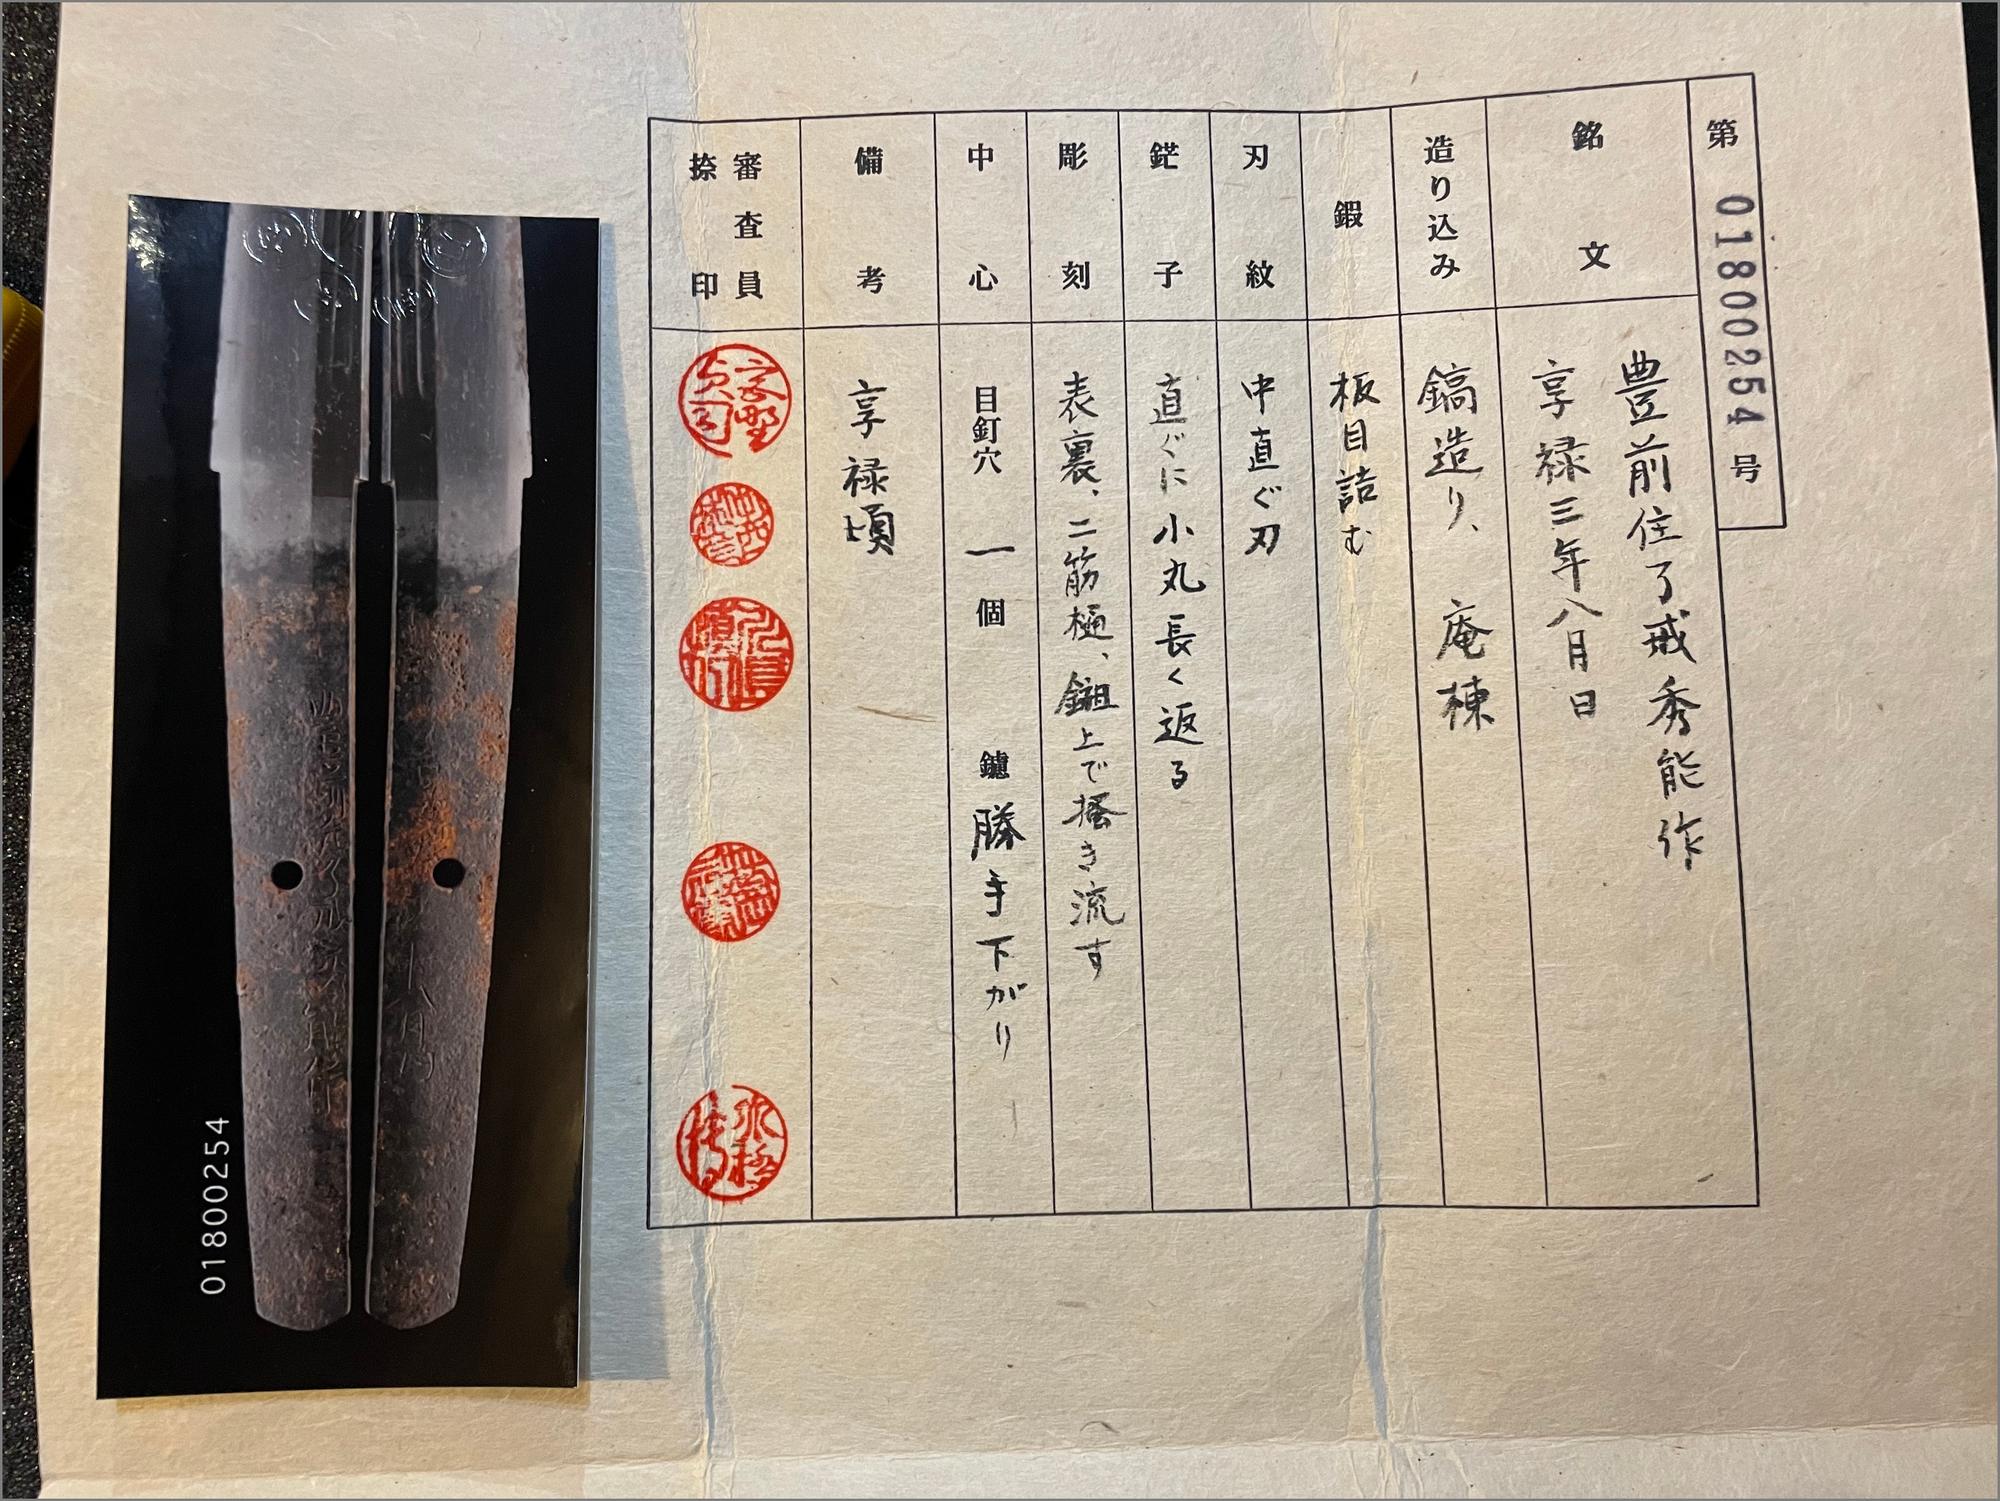 第01800254号
銘文
豊前住了戒秀能作
享禄三年八月日
造り込み
鎬造り、庵棟
鍛
板目詰む
刃紋
中直ぐ刃
鋩子
直ぐに小丸長く返る
彫刻
表裏、二筋樋、鎺上で掻き流す
中心
目釘穴 一 個 鑢 勝手下がり
備考
享禄頃
審査員
捺印
01800254